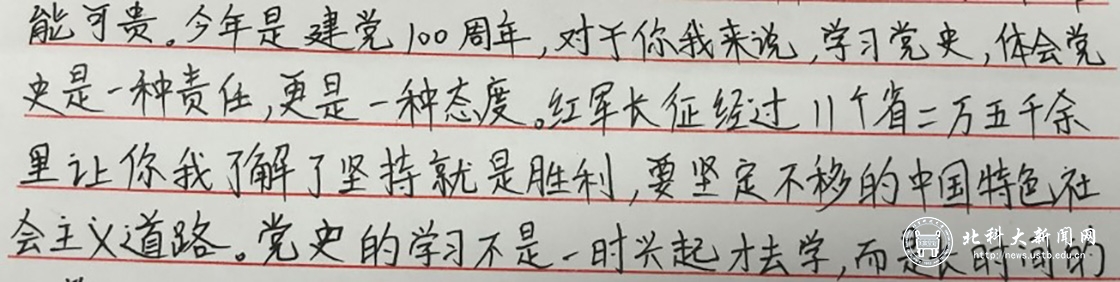 能可贵。今年是建党100周年,对于你我来说,学习党史,体会党
史是一种责任,更是一种态度。红军长征经过11个省二万五千余
里让你我了解了坚持就是胜利,要坚定不移的中国特色社
会主义道路。党史的学习不是一时兴起才去学,而是长时间的
北科大新闻网
http://news.ustb.edu.cn